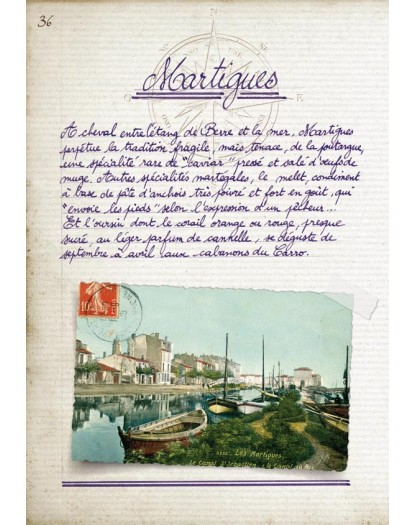 36
Martigues
A cheval entre l'étang de Berre et la mer, Martigues
perpétue la tradition fragile, mais tenace, de la poutargue,
une spécialité rare de "caviar" pressé et salé d'œufs de
muge. Autres spécialités martégales, le melet, condiment
à base de pâte d'anchois très poivré et fort en goût, qui
"envoie les pieds" selon l'expression d'un pêcheur...
Et l'oursin dont le corail orange ou rouge, presque
sucré, au léger parfum de cannelle, se déguste de
septembre à avril aux cabanons du Carro.
10
Les Martigues
Le Canal St Sébastien